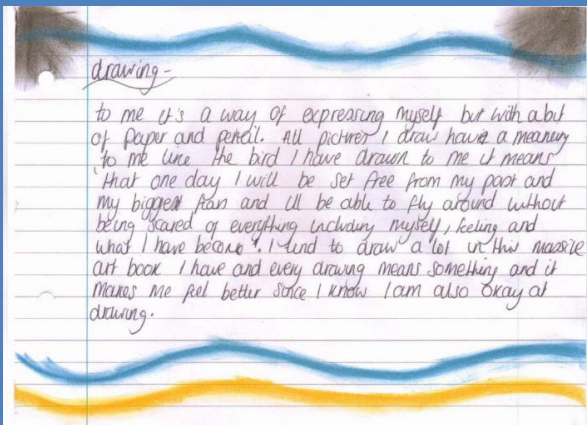 drawing -
to me it's a way of expressing myself but with a bit
of paper and pencil. All pictures I draw have a meaning
to me like the bird I have drawn to me it means
that one day I will be set free from my past and
my biggest fan and ill be able to fly around without
being scared of everything including myself, feeling and
what I have become. I tend to draw a lot in this massive
art book I have and every drawing means something and it
makes me feel better since I know I am also okay at
drawing.